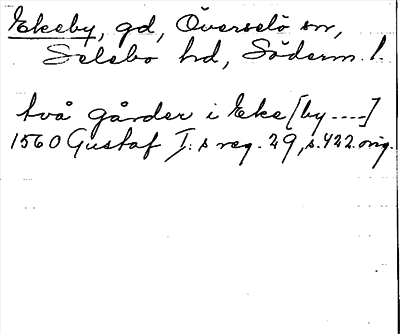 Ekeby, gd, Överselö sn,
Selebo hd, Söderm. l.
två gårder i Eke[by ----]
1560 Gustaf I:s reg. 29, s. 422. orig.